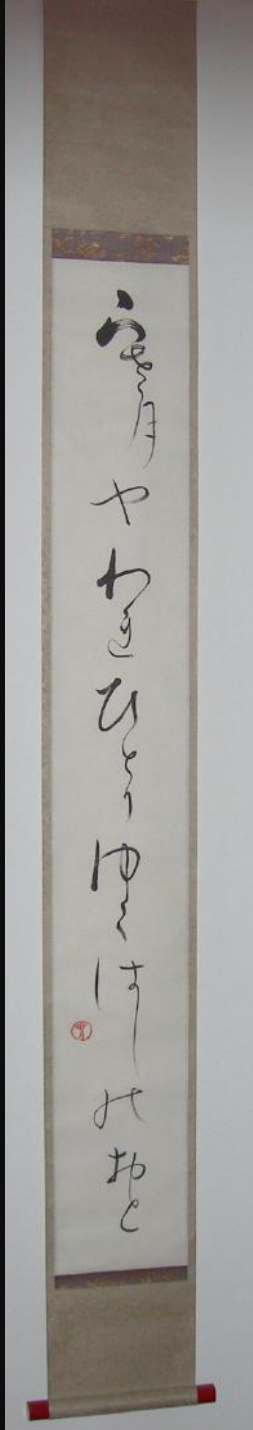 寒月やわれひとりゆくはしのおと